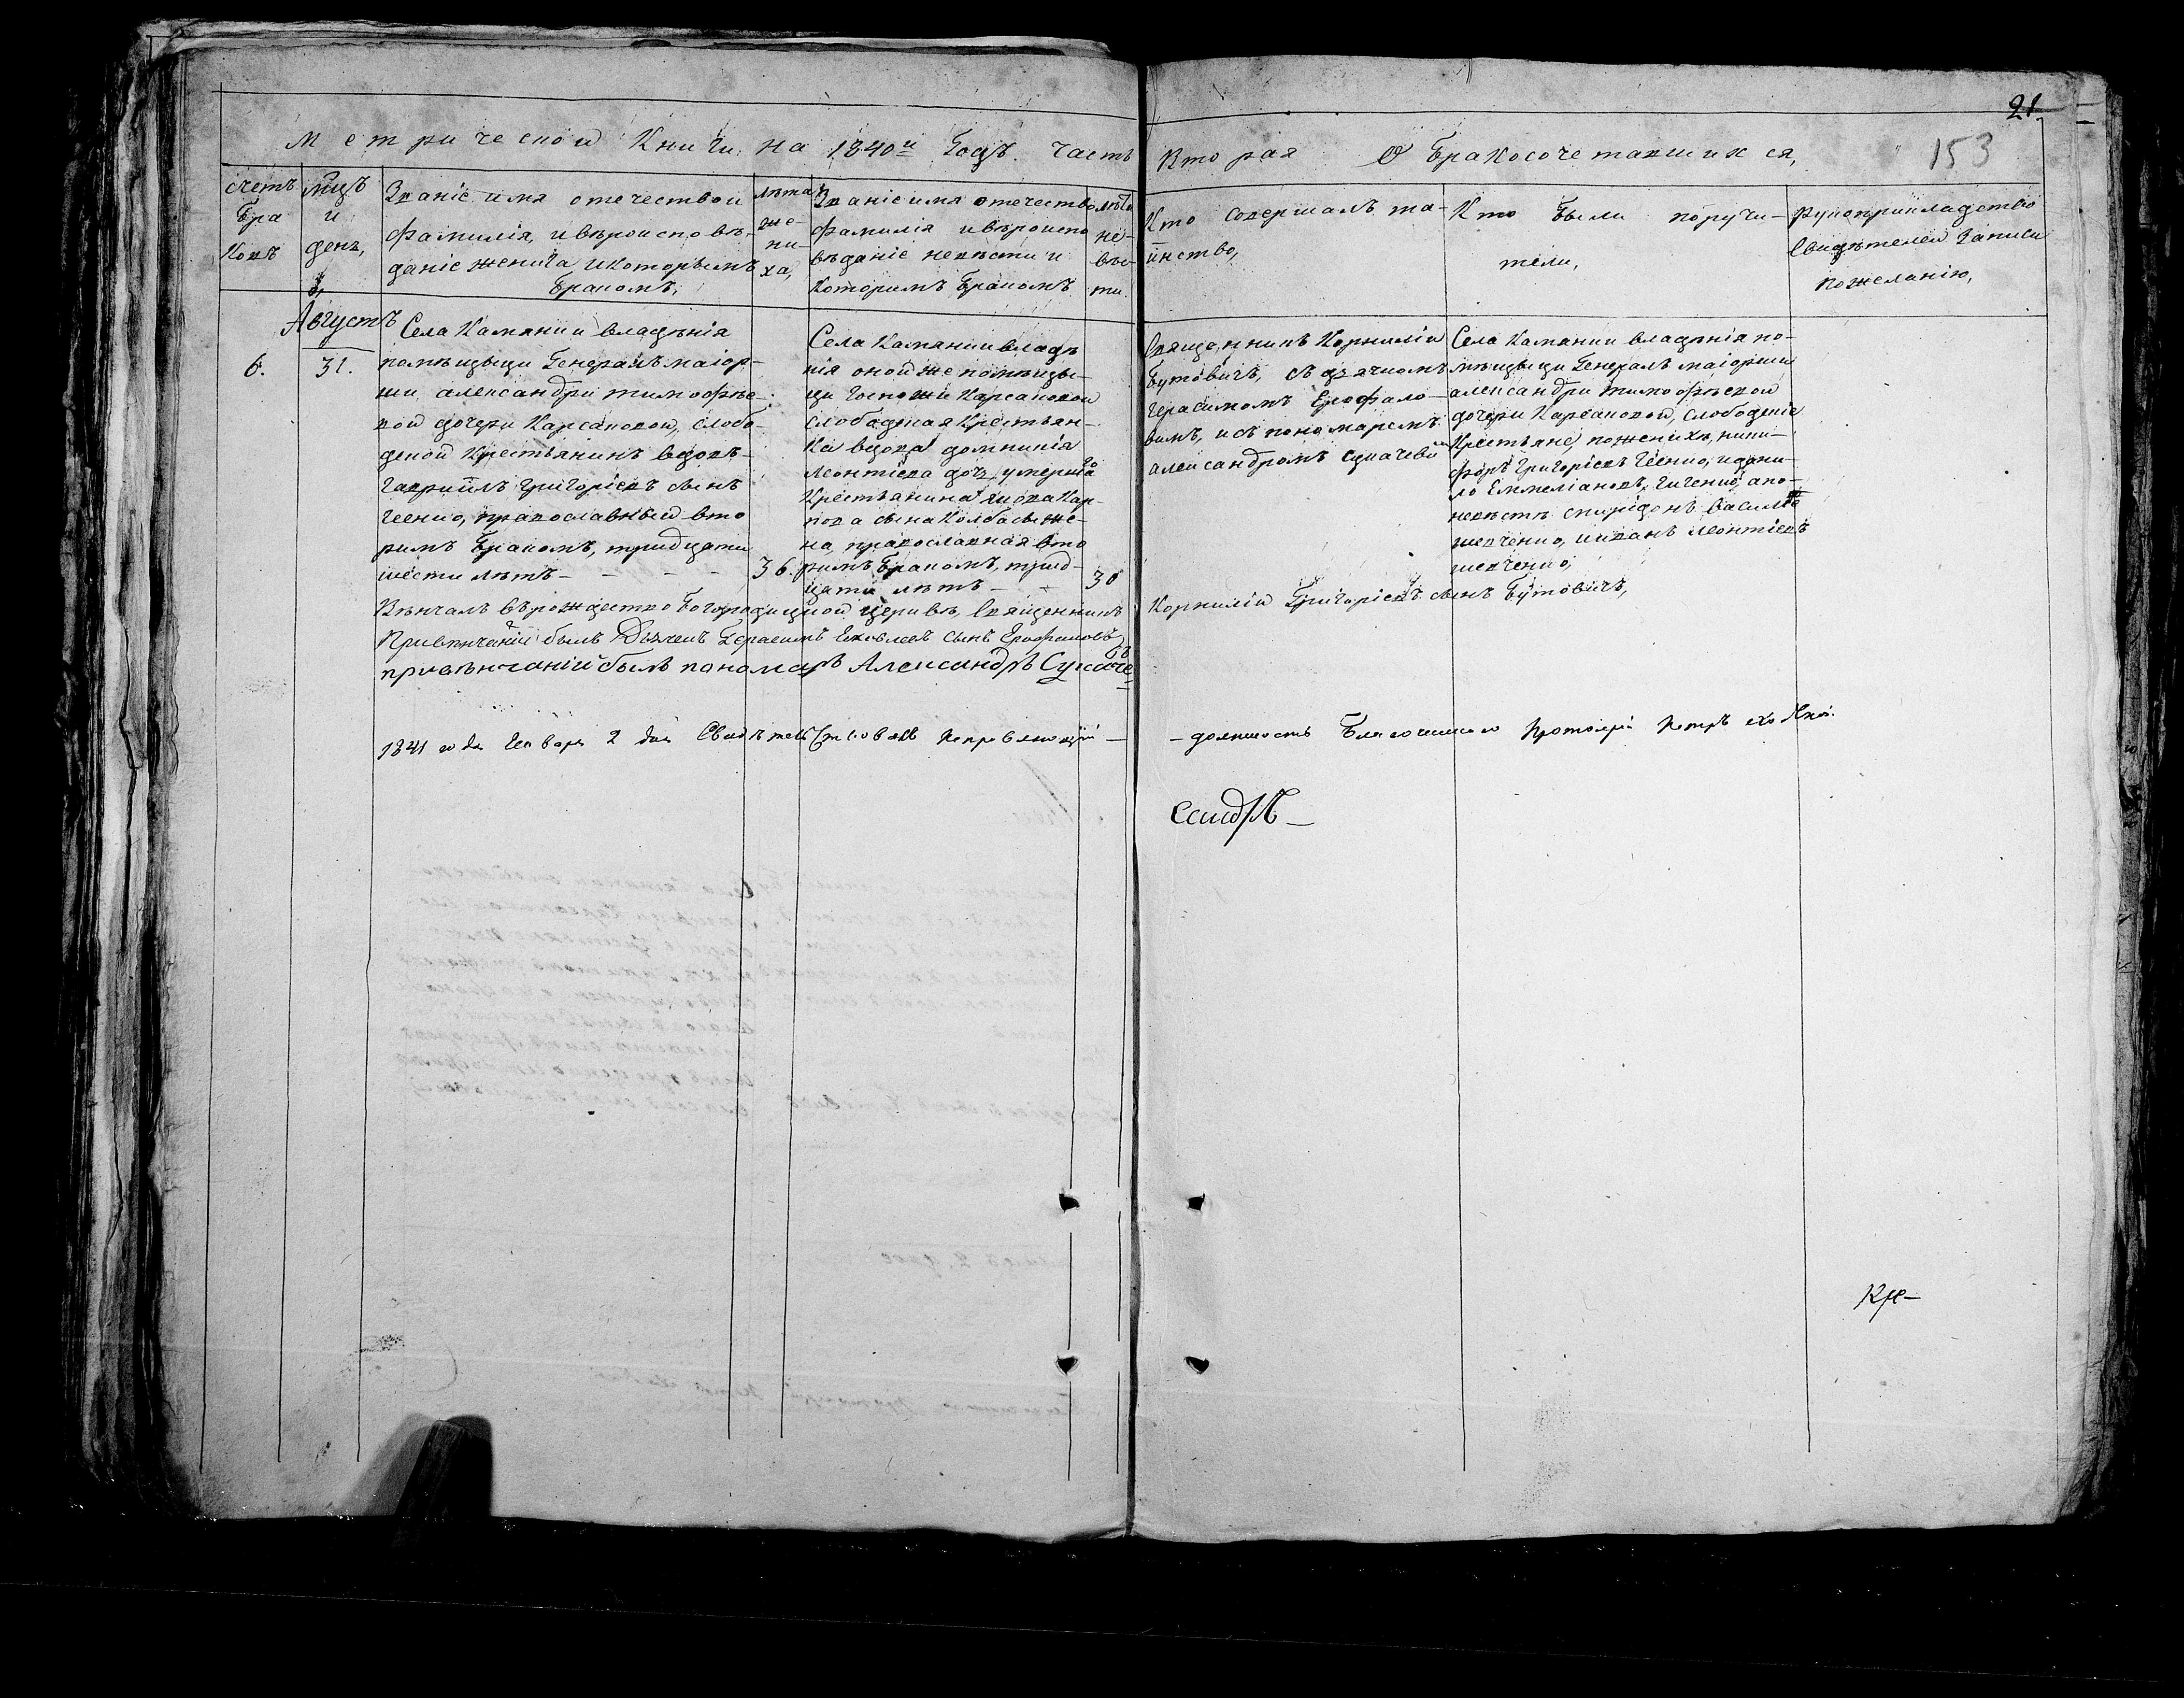 21
153
Метрической Книги на 1840й Годъ. Часть Вторая О Бракосочетавшихся,
счетъ
бра
ковъ
мцъ
и
день,
Званіе имя отечество и
фамилія, и вѣроисповѣ-
даніе жениха и которымъ
бракомъ,
лѣта
же-
ни-
ха,
Званіе имя отечество
фамилія и вѣроиспо
вѣданіе невѣсти и
которимъ бракомъ
лѣта
не-
вѣс-
ти.
Кто совершалъ та-
инство,
Кто были поручи-
тели,
рукоприкладство
свидѣтелей записи
по желанію,
Августъ
6.
31.
Села Камянки владѣнія
помѣщыци Генералъ маіор-
ши александри тимофѣе-
вой дочери Карсаковой, слобо-
дской крестьянинъ вдовъ-
Гавриилъ Григоріевъ сынъ
православный вто
римъ бракомъ, тридцати
шести лѣтъ - - - -
36.
Села Камянки владѣ
нія оной же помѣщы-
ци Госпожи Карсаковой
слободская крестьян-
ка вдова домникія
леонтіева доч, умершаго
крестьянина Кар-
пова сына Колбасы же-
на, православная вто
римъ бракомъ, трид-
цати лѣтъ - -
30
Священникъ Корнилій
Бутовичъ, съ дьячкомъ
Герасимомъ Ерофало-
вимъ, и съ пономаремъ
александромъ
Села Камянки владѣнія по-
мѣщыци Генералъ маіорши
александри тимофѣевой
дочери Карсаковой, слободскіе
крестьяне, по женихѣ, ники-
форъ Григоріевъ и дани-
ло Еммеліановъ, а по
невѣстѣ спиридонъ Василіе
шевченко, и иванъ леонтіевъ
шевченко,
Вѣнчалъ въ рождество Богородицкой церквѣ, Священникъ Корнилій Григоріевъ сынъ Бутовичъ,
При вѣнчаніи былъ Дьячекъ Герасимъ сынъ Ерофаловъ
при вѣнчаніи былъ паномаръ Александръ
1841 года Генваря 2 дня Свидѣтельствовалъ исправляющій - - должность Благочиннаго Протоіерей Петръ